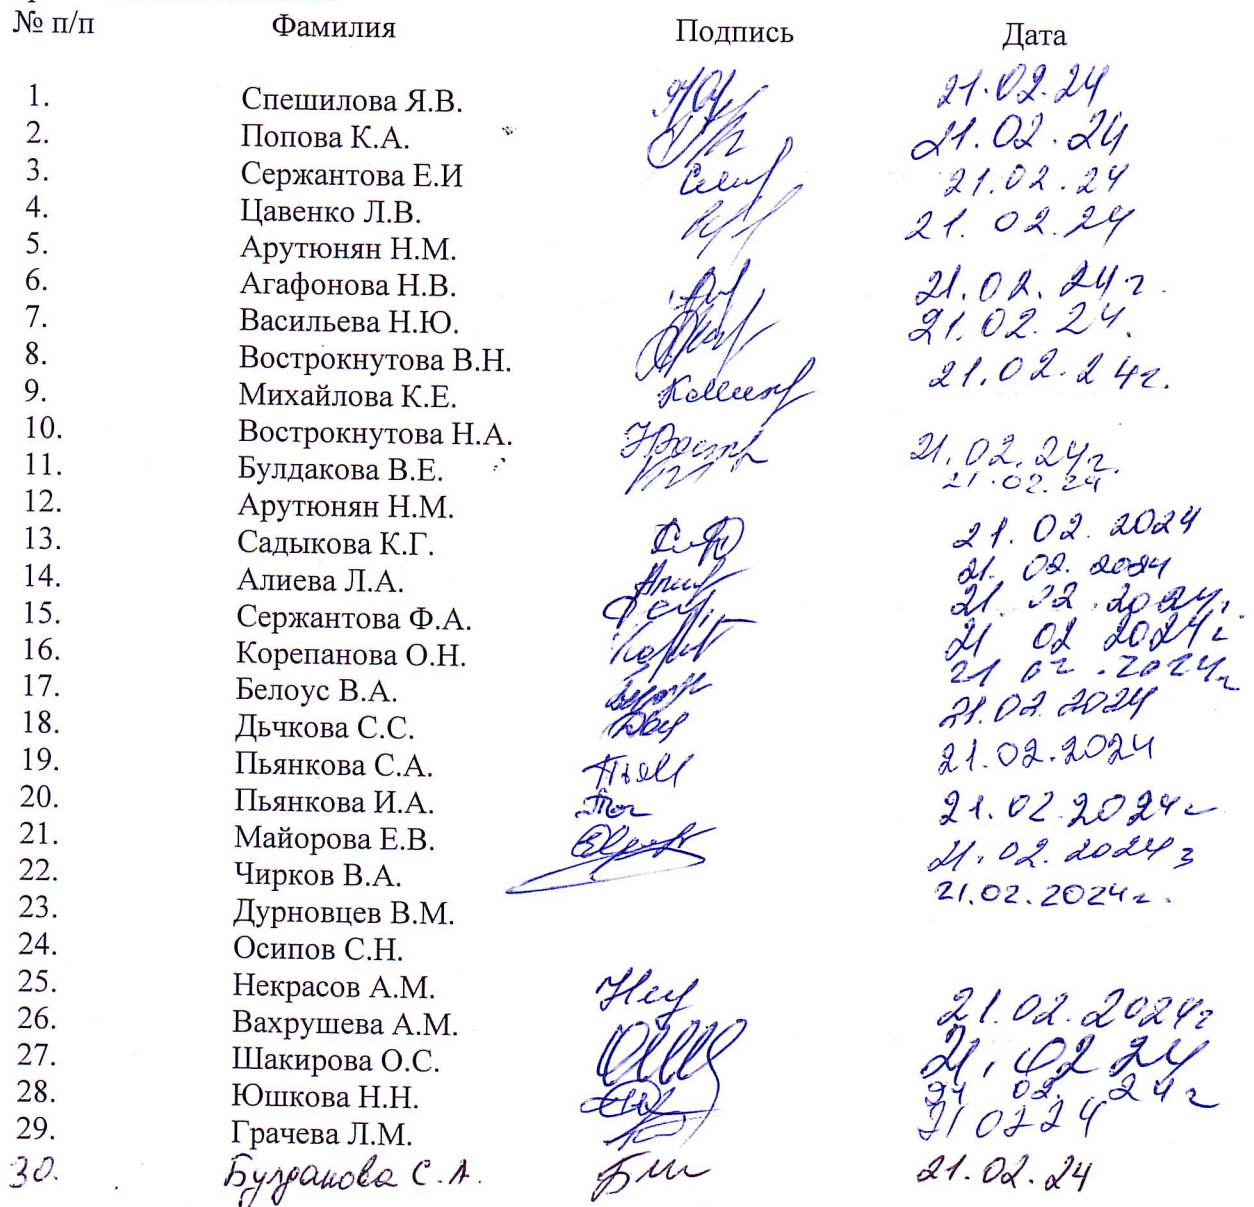 № п/п Фамилия Подпись Дата
1. Спешилова Я.В. 21.02.24
2. Попова К.А. 21.02.24
3. Сержантова Е.И 21.02.24
4. Цавенко Л.В. 21.02.24
5. Арутюнян Н.М.
6. Агафонова Н.В. 21.02.24г.
7. Васильева Н.Ю. 21.02.24.
8. Вострокнутова В.Н.
9. Михайлова К.Е. 21.02.24г.
10. Вострокнутова Н.А. 21.02.24г.
11. Булдакова В.Е. 21.02.24
12. Арутюнян Н.М.
13. Садыкова К.Г. 21.02.2024
14. Алиева Л.А. 21.02.2024
15. Сержантова Ф.А. 21.02.2024г.
16. Корепанова О.Н. 21 02 2024г
17. Белоус В.А. 21 02.2024г
18. Дьчкова С.С. 21.02.2024
19. Пьянкова С.А. 21.02.2024
20. Пьянкова И.А. 21.02.2024г
21. Майорова Е.В. 21.02.2024г
22. Чирков В.А. 21.02.2024г.
23. Дурновцев В.М.
24. Осипов С.Н.
25. Некрасов А.М. 21.02.2024г
26. Вахрушева А.М.
27. Шакирова О.С. 21.02 24
28. Юшкова Н.Н. 21 02. 24г
29. Грачева Л.М. 21 02 24
30. Булдакова С.А. 21.02.24